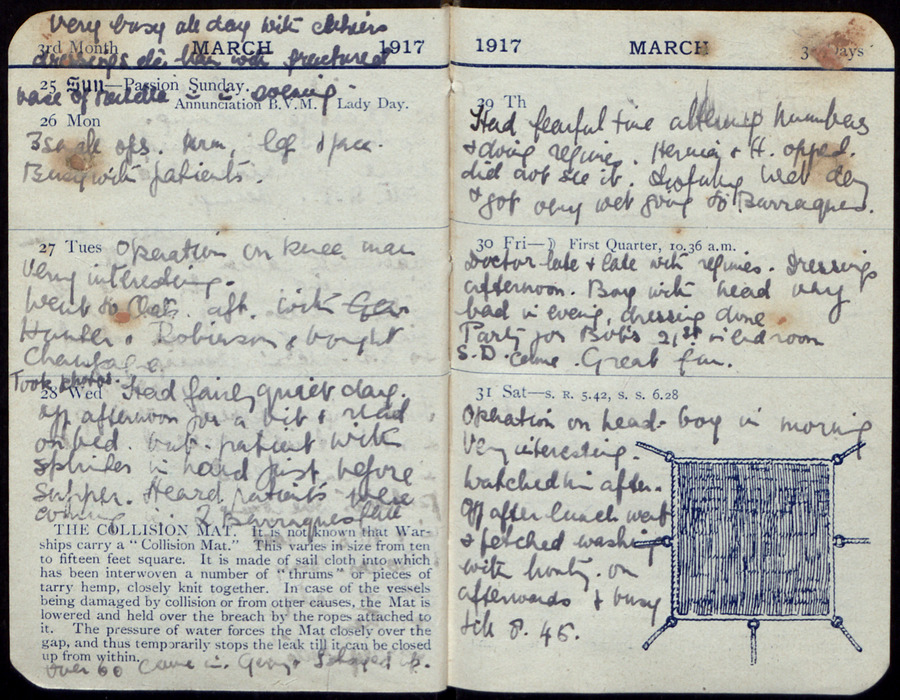 Very busy all day with
3rd Month MARCH 1917
dressings. with fractured
25 Sun—Passion Sunday.
base of evening.
Annunciation B.V.M. Lady Day.
26 Mon
ops. leg
Busy with patients.
27 Tues Operation on knee man
Very interesting.
Went to aft. with
Hunter & Robinson & bought
Took photos.
28 Wed Had fairly quiet day.
Off afternoon for a bit & read
on bed. patient with
in head just before
supper. Heard patients were
coming in. Barraques
THE COLLISION MAT. It is not known that War-
ships carry a "Collision Mat." This varies in size from ten
to fifteen feet square. It is made of sail cloth into which
has been interwoven a number of "thrums" or pieces of
tarry hemp, closely knit together. In case of the vessels
being damaged by collision or from other causes, the Mat is
lowered and held over the breach by the ropes attached to
it. The pressure of water forces the Mat closely over the
gap, and thus temporarily stops the leak till it can be closed
up from within.
Over 60 came in.
1917 MARCH 3 Days
29 Th
Had fearful time altering numbers
& doing régimes. Hernia & H. opped.
did not see it. wet day
& got very wet going to Barraques.
30 Fri—☽ First Quarter, 10.36 a.m.
Doctor late & late with régimes. Dressings
afternoon. Boy with head very
bad in evening, dressing done
Party for Bob's 21st in bedroom
S.D. came. Great fun.
31 Sat—S. R. 5.42, S. S. 6.28
Operation on head-boy in morning
Very interesting.
Watched him after.
Off after lunch went
& fetched washing
with Monty. on
afterwards & busy
till 8.45.